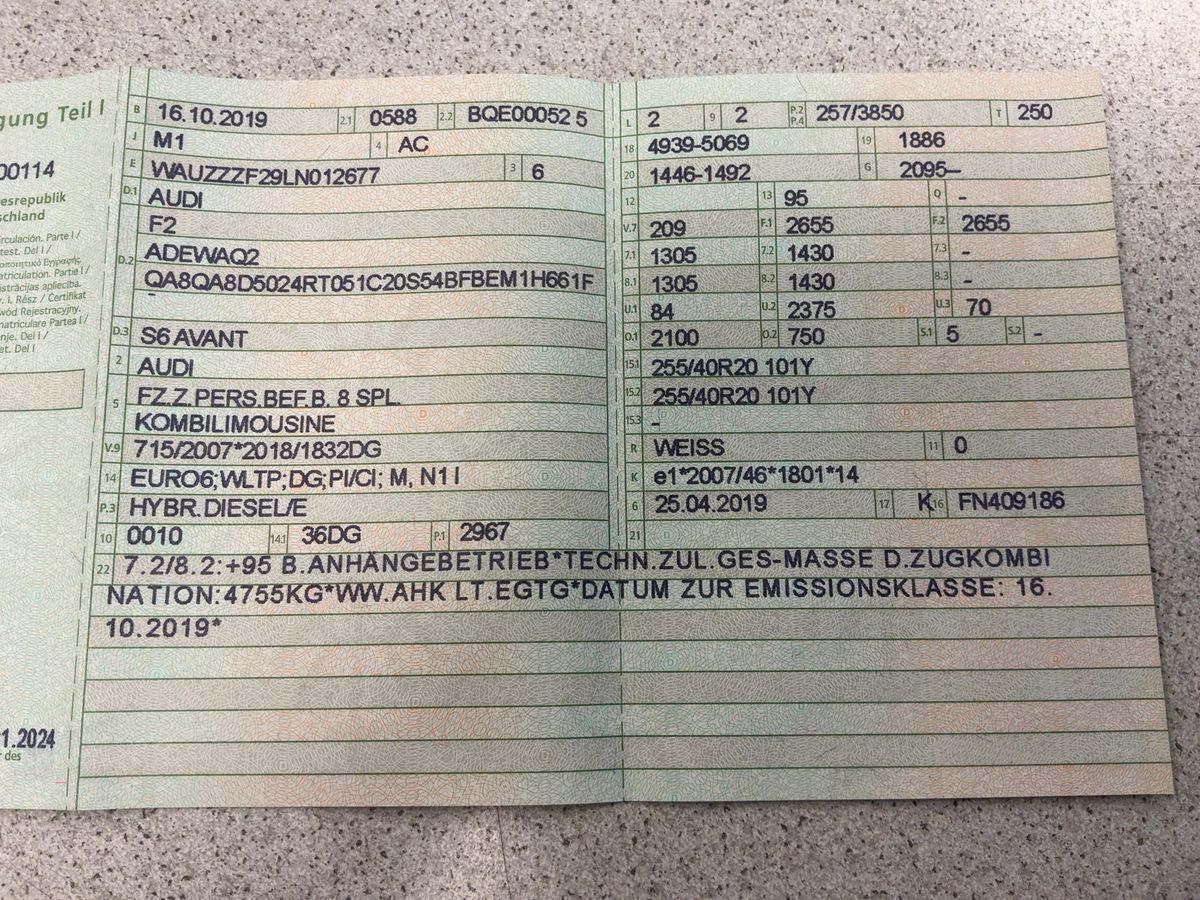 gung Teil I
00114
esrepublik
schland
irculation. Parte I /
test. Del I /
atriculation. Partie I /
istrācijas apliecība.
r. I. Rész / Ċertifikat
wód Rejestracyjny.
matriculare Partea I /
nje. Del I /
et. Del I
1.2024
r des
B 16.10.2019 2.1 0588 2.2 BQE00052 5
J M1 4 AC
E WAUZZZF29LN012677 3 6
D.1 AUDI
F2
D.2 ADEWAQ2
QA8QA8D5024RT051C20S54BFBEM1H661F
-
D.3 S6 AVANT
2 AUDI
5 FZ.Z.PERS.BEF.B. 8 SPL.
KOMBILIMOUSINE
V.9 715/2007*2018/1832DG
14 EURO6;WLTP;DG;PI/CI; M, N1 I
P.3 HYBR.DIESEL/E
10 0010 14.1 36DG P.1 2967
L 2 9 2 P.2 P.4 257/3850 T 250
18 4939-5069 19 1886
20 1446-1492 G 2095–
12 13 95 Q -
V.7 209 F.1 2655 F.2 2655
7.1 1305 7.2 1430 7.3 -
8.1 1305 8.2 1430 8.3 -
U.1 84 U.2 2375 U.3 70
O.1 2100 O.2 750 S.1 5 S.2 -
15.1 255/40R20 101Y
15.2 255/40R20 101Y
15.3 -
R WEISS 11 0
K e1*2007/46*1801*14
6 25.04.2019 17 K 16 FN409186
21
22 7.2/8.2:+95 B.ANHÄNGEBETRIEB*TECHN.ZUL.GES-MASSE D.ZUGKOMBI
NATION:4755KG*WW.AHK LT.EGTG*DATUM ZUR EMISSIONSKLASSE: 16.
10.2019*